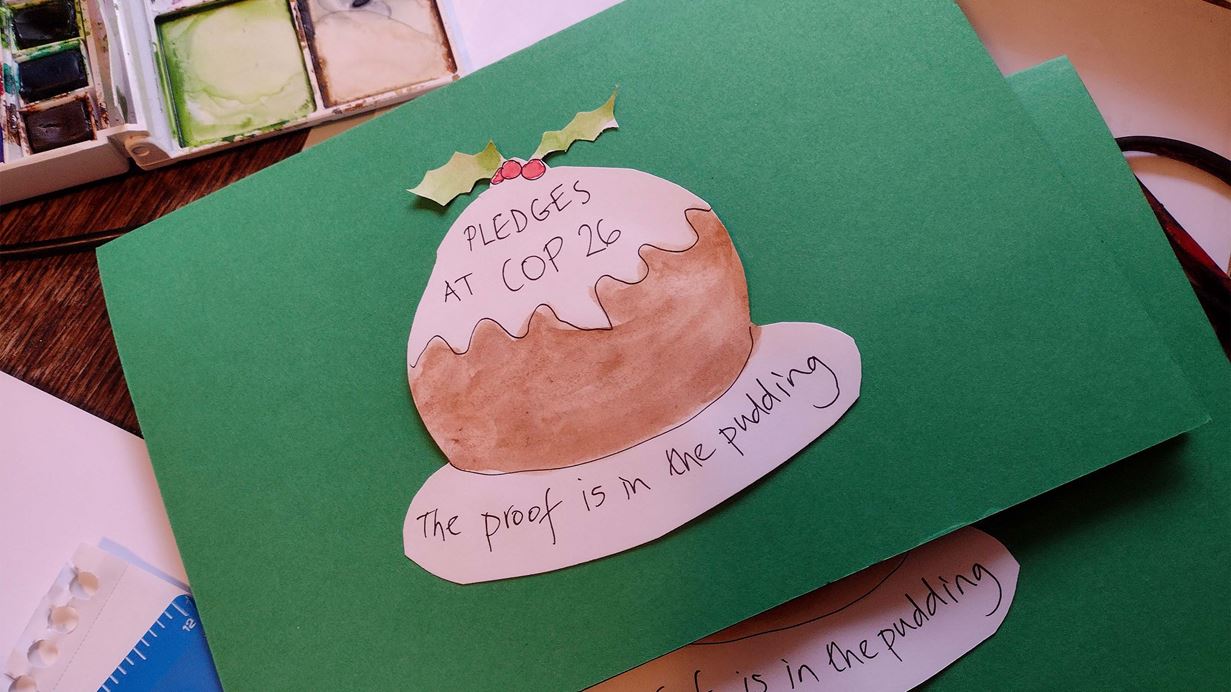 PLEDGES
AT COP 26
The proof is in the pudding
is in the pudding
12